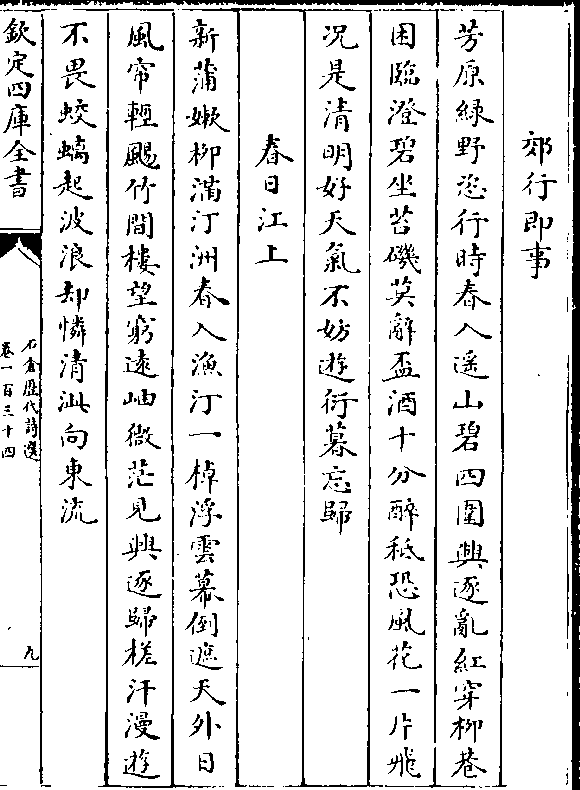 郊行即事
芳原緑野恣行時春入遥山碧四圍興逐亂紅穿柳巷
困臨澄碧坐苔磯莫辭盃酒十分醉秪恐風花一片飛
况是清明好天氣不妨遊衍暮忘歸
春日江上
新蒲嫰柳滿汀洲春入漁汀一棹浮雲幕倒遮天外日
風帘輕颺竹間樓望窮逺岫微茫見興逐歸槎汗漫遊
不畏蛟螭起波浪却憐清泚向東流
欽定四庫全書
石倉歴代詩選
卷一百三十四
九